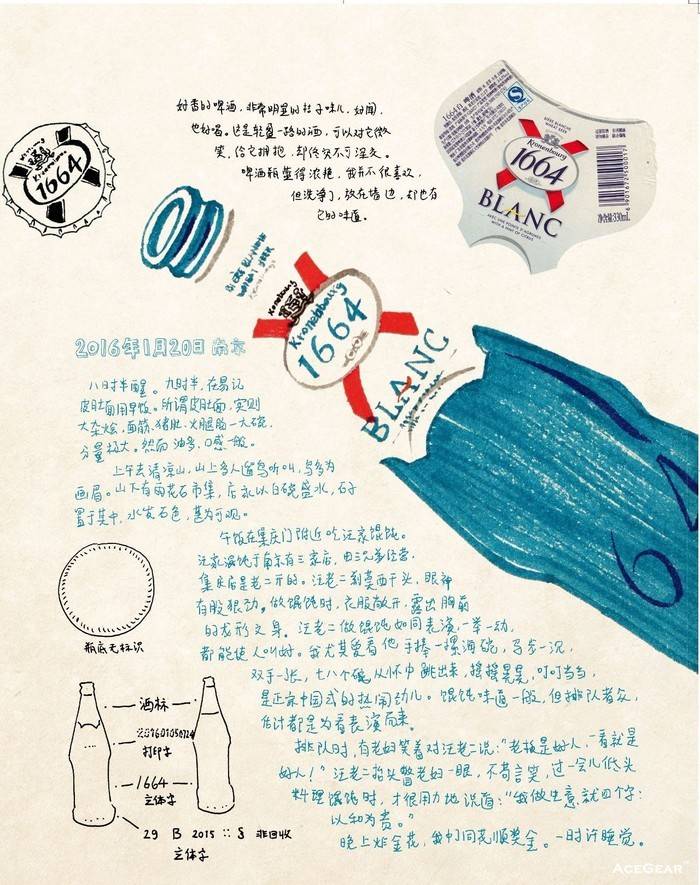 好香的啤酒，非常明显的桔子味儿，好闻，
也好喝。这是轻盈一路的酒，可以对它微
笑，给它拥抱，却终究不可深交。
啤酒瓶蓝得浓艳，我并不很喜欢，
但洗净了，放在墙边，却也有
它的味道。
Kronenbourg
1664
1664白 啤酒
BIERE BLANCHE
WHEAT BEER
Kronenbourg
1664
BLANC
AVEC UNE POINTE D'AGRUMES
WITH A HINT OF CITRUS
净含量:330mL
Kronenbourg
1664
BLANC
64
2016年1月20日 南京
八时半醒。九时半，在易记
皮肚面用早饭。所谓皮肚面，实则
大杂烩，面筋、猪肚、火腿肠一大碗，
分量极大。然而油多，口感一般。
上午去清凉山，山上多人遛鸟听叫，鸟多为
画眉。山下有雨花石市集，店家以白碗盛水，石子
置于其中，水发石色，甚为可观。
午饭在集庆门附近吃汪家馄饨。
汪家馄饨于南京有三家店，由三兄弟经营，
集庆店是老二开的。汪老二剃莫西干头，眼神
有股狠劲。做馄饨时，衣服敞开，露出胸前
的龙形文身。汪老二做馄饨如同表演，一举一动，
都能使人叫好。我尤其爱看他手捧一摞海碗，马步一沉，
双手一张，七八个碗从怀中跳出来，摇摇晃晃，叮叮当当，
是正宗中国式的热闹劲儿。馄饨味道一般，但排队者众，
估计都是为看表演而来。
排队时，有老妇笑着对汪老二说：“老板是好人，一看就是
好人！”汪老二抬头瞥老妇一眼，不苟言笑，过一会儿低头
料理馄饨时，才很用力地说道：“我做生意就四个字：
以和为贵。”
晚上炸金花，我们同花顺奖金。一时许睡觉。
瓶底无标识
酒标
打印字
1664
立体字
29 B 2015 :: § 非回收
立体字
ACEGEAR